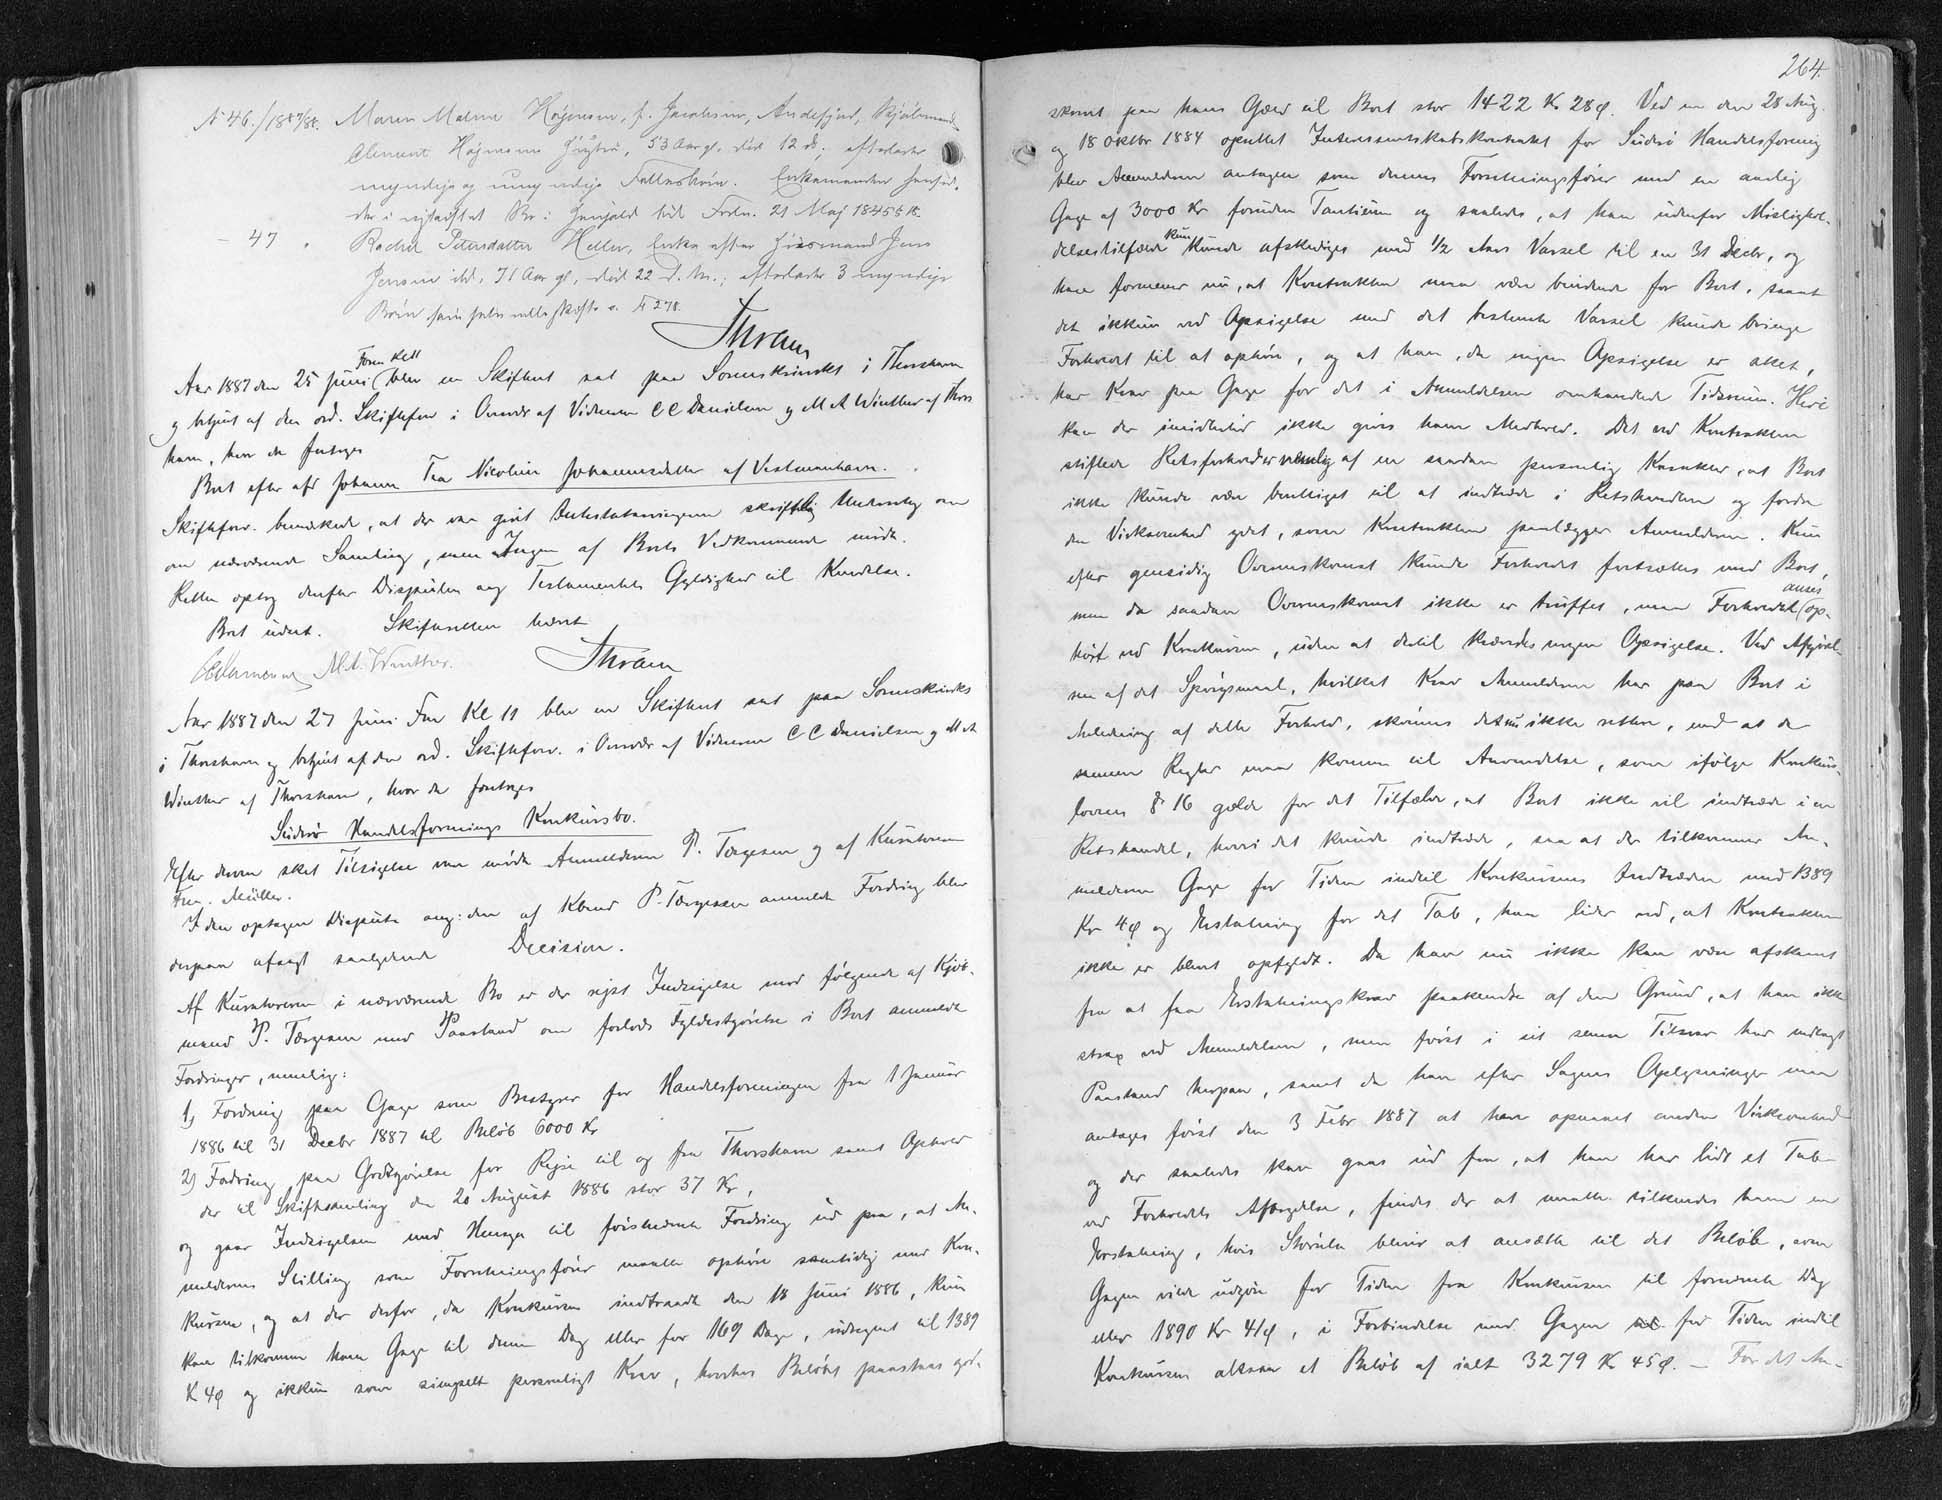 N 46./18 87/88. Maren Malene Højgesen, f. Jacobsen, Andefjord,
Clement Højgesens Hustru, 53 Aar gl. død 12 ds; efterlader
myndige og umyndige Fællesbørn. Enkemanden hensid-
der i uskiftet Bo i Henhold til Frdn. 21 Maj 1845 § 18.
- 47 " Rachel Petersdatter Heller, Enke efter Huusmand Jens
Jensen ibd, 71 Aar gl, død 22 d. M.; efterlader 3 myndige
Børn som selv ville skifte. F 278.
Thram
Aar 1887 den 25 Juni (Form Kl 11 blev en Skifteret sat paa Sorenskriverkt i Thorshavn
og betjent af den ord. Skifteforv i Overvær af Vidnerne CC Danielsen og M A Winther af Thors
havn, hvor da foretoges
Boet efter afd Johanne Tea Nicoline Johannesdatter af Vestmanhavn.
Skifteforv. bemærkede, at der var givet Intestatarvingerne skriftlig Underretng om
om nærværende Samling, men Ingen af Boets Vedkommende mødte.
Retten optog derefter Disputen ang Testamentets Gyldighed til Kendelse.
Boet udsat. Skifteretten hævet
CCDanielsen M.A. Winther. Thram
Aar 1887 den 27 Juni Fm Kl 11 blev en Skifteret sat paa Sorenskrivkt
i Thorshavn og betjent af den ord. Skifteforv. i Overvær af Vidnerne CC Danielsen og M A
Winther af Thorshavn, hvor da foretoges
Suderø Handelsforenings Konkursbo.
Efter derom sket Tilsigelse var mødt Anmelderen P. Tørgesen og af Kuratorerne
Fr. Müller.
I den optagne Dispute ang: den af Kbmd P. Tørgesen anmeldte Fordring blev
derpaa afsagt saalydende Decision.
Af Kuratorerne i nærværende Bo er der rejst Indsigelse mod følgende af Kjøb-
mand P. Tørgesen med Paastand om forlods Fyldestgjørelse i Boet anmeldte
Fordringer, nemlig:
1, Fordring paa Gage som Bestyrer for Handelsforeningen fra 1 Januar
1886 til 31 Decbr 1887 til Beløb 6000 Kr
2) Fordring paa Godtgjørelse for Rejse til og fra Thorshavn samt Ophold
der til Skiftesamling den 20 August 1886 stor 37 Kr,
og gaar Indsigelsen med Hensyn til førstnævnte Fordring ud paa, at An-
melderens Stilling som Forretningsfører maatte ophøre samtidig med Kon-
kursen, og at der derfor, da Konkursen indtraadte den 18 Juni 1886, kun
kan tilkomme ham Gage til denne Dag eller for 169 Dage, udregnet til 1389
K 4 ø og ikkun som simpelt personligt Krav, hvorhos Beløbet paastaas god-
264.
skrevet paa hans Gæld til Boet stor 1422 Kr 28 ø. Ved en den 28 Aug.
og 18 Oktbr 1884 oprettet Interessentskabskontrakt for Suderø Handelsforening
blev Anmelderen antagen som dennes Forretningsfører med en aarlig
Gage af 3000 Kr foruden Tantieme og saaledes, at han udenfor Mislighol-
delsestilfælde kun kunde afskediges med 1/2 Aars Varsel til en 31 Decbr, og
han formener nu, at Kontrakten maa være bindende for Boet, saaat
det ikkun ved Opsigelse med det bestemte Varsel kunde bringe
Forholdet til at ophøre, og at han, da ingen Opsigelse er sket,
har Krav paa Gage for det i Anmeldelsen omhandlede Tidsrum. Heri
kan der imidlertid ikke gives ham Medhold. Det ved Kontrakten
stiftede Retsforhold er nemlig af en saadan personlig Karakter, at Boet
ikke kunde være berettiget til at indtræde i Retshandlen og fordre
den Virksomhed ydet, som Kontrakten paalægger Anmelderen. Kun
efter gensidig Overenskomst kunde Forholdet fortsættes med Boet,
men da saadan Overenskomst ikke er truffet, maa Forholdet (anses op-
hørt ved Konkursen, uden at dertil krævedes nogen Opsigelse. Ved Afgjørel-
sen af det Spørgsmaal, hvilket Krav Anmelderen har paa Boet i
Anledning af dette Forhold, skønnes det nu ikke rettere, end at de
samme Regler maa komme til Anvendelse, som ifølge Konkurs-
lovens § 16 gælde for det Tilfælde, at Boet ikke vil indtræde i en
Retshandel, hvori det kunde indtræde, saa at der tilkommer An-
melderen Gage for Tiden indtil Konkursens Indtræden med 1389
Kr 4 ø og Erstatning for det Tab, han lider ved, at Kontrakten
ikke er blevet opfyldt. Da han nu ikke kan være afskaaret
fra at faa Erstatningskrav paakendt af den Grund, at han ikke
strax ved Anmeldelsen, men først i sit senere Tilsvar har nedlagt
Paastand herpaa, samt da han efter Sagens Oplysninger maa
antages først den 3 Febr 1887 at have opnaaet anden Virksomhed
og der saaledes kan gaas ud fra, at han har lidt et Tab
ved Forholdets Afbrydelse, findes der at maatte tilkendes ham en
Erstatning, hvis Størrelse bliver at ansætte til det Beløb, som
Gagen vilde udgjøre for Tiden fra Konkursen til fornævnte Dag
eller 1890 Kr 41 ø, i Forbindelse med Gagen for Tiden indtil
Konkursen altsaa et Beløb af ialt 3279 Kr 45 ø. – For det An-